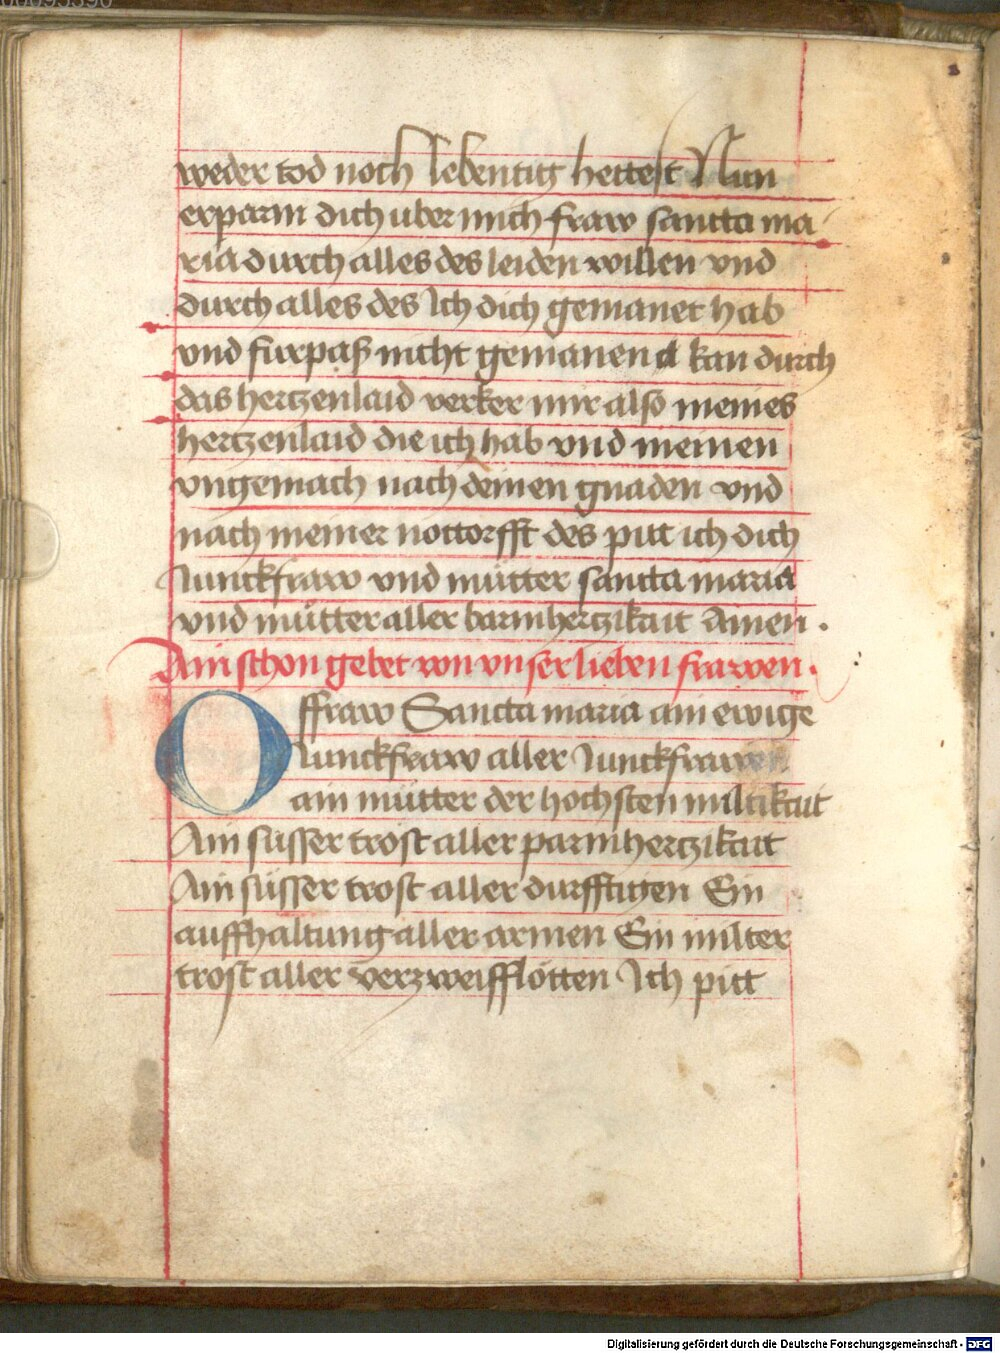 weder tod noch lebentig hettest Nun
erparm dich uber mich fraw sancta ma
ria durch alles des leiden willen vnd
durch alles des Ich dich gemanet hab
vnd furpaß nicht gemanen kan durch
das hertzenlaid verker mir also meines
hertzenlaid die ich hab vnd meinen
vngemach nach deinen gnaden vnd
nach meiner nottorfft des pitt ich dich
Junckfraw vnd mutter sancta maria
vnd mutter aller barmhertzikait Amen .
Ain schon gebet von vnser lieben frawen .
O ffraw Sancta maria ain ewige
Junckfraw aller Junckfrawen
ain mutter der hochsten miltikait
Ain susser trost aller parmhertzikait
Ain susser trost aller durfftigen Ein
auffhaltung aller armen Ein milter
trost aller verzweifflotten Ich pitt
Digitalisierung gefördert durch die Deutsche Forschungsgemeinschaft - DFG